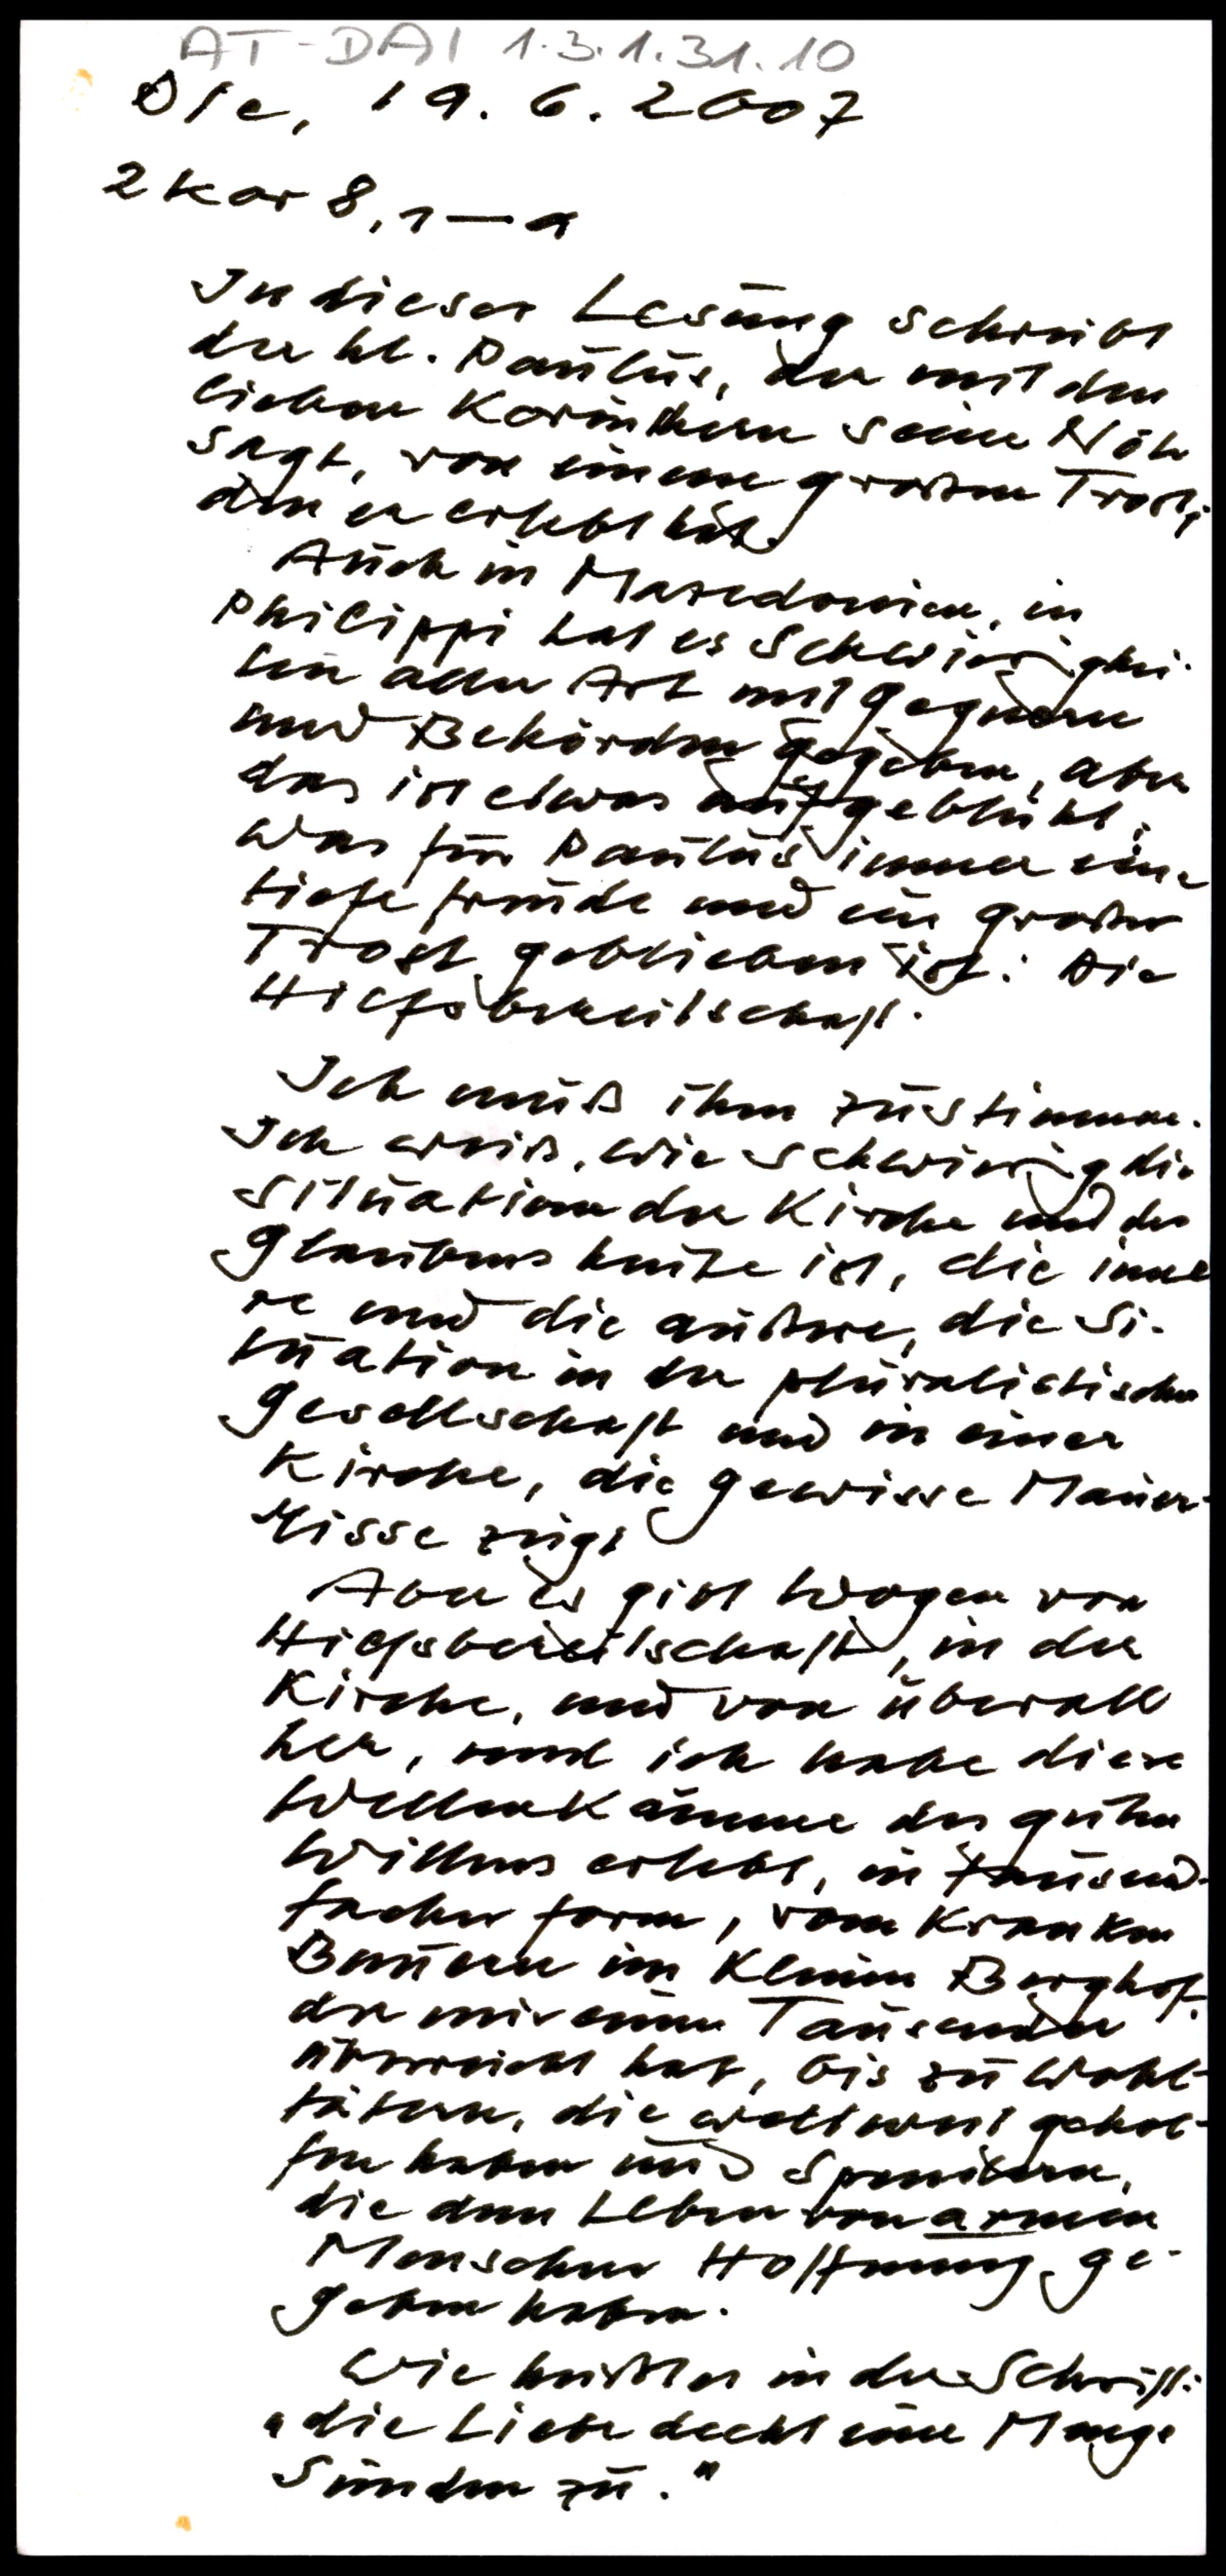 AT-DAI 1.3.1.31.10
Die, 19. 6. 2007
2 Kor 8, 1–9
In dieser Lesung schreibt
der hl. Paulus, der mit den
lieben Korinthern seine Nöte
sagt, von einem großen Trost,
den er erlebt hat.
Auch in Mazedonien, in
Philippi hat es Schwierigkei-
ten aller Art mit Gegnern
und Behörden gegeben, aber
da ist etwas aufgeblüht,
was für Paulus immer eine
tiefe Freude und ein großer
Trost geblieben ist: Die
Hilfsbereitschaft.
Ich muß ihm zustimmen.
Ich weiß, wie schwierig die
Situation der Kirche und des
Glaubens heute ist, die inne
re und die äußere, die Si-
tuation in der pluralistischen
Gesellschaft und in einer
Kirche, die gewisse Mauer-
risse zeigt
Aber es gibt Wogen von
Hilfsbereitschaft, in der
Kirche, und von überall
her, und ich habe diese
Wellenkämme des guten
Willens erlebt, in tausend-
facher Form, vom kranken
Bauern im kleinen Berghof,
der mir einen Tausender
überreicht hat, bis zu Wohl-
tätern, die weltweit gehol-
fen haben und Spendern,
die dem Leben von armen
Menschen Hoffnung ge-
geben haben.
Wie heißt es in der Schrift:
"die Liebe deckt eine Menge
Sünden zu."